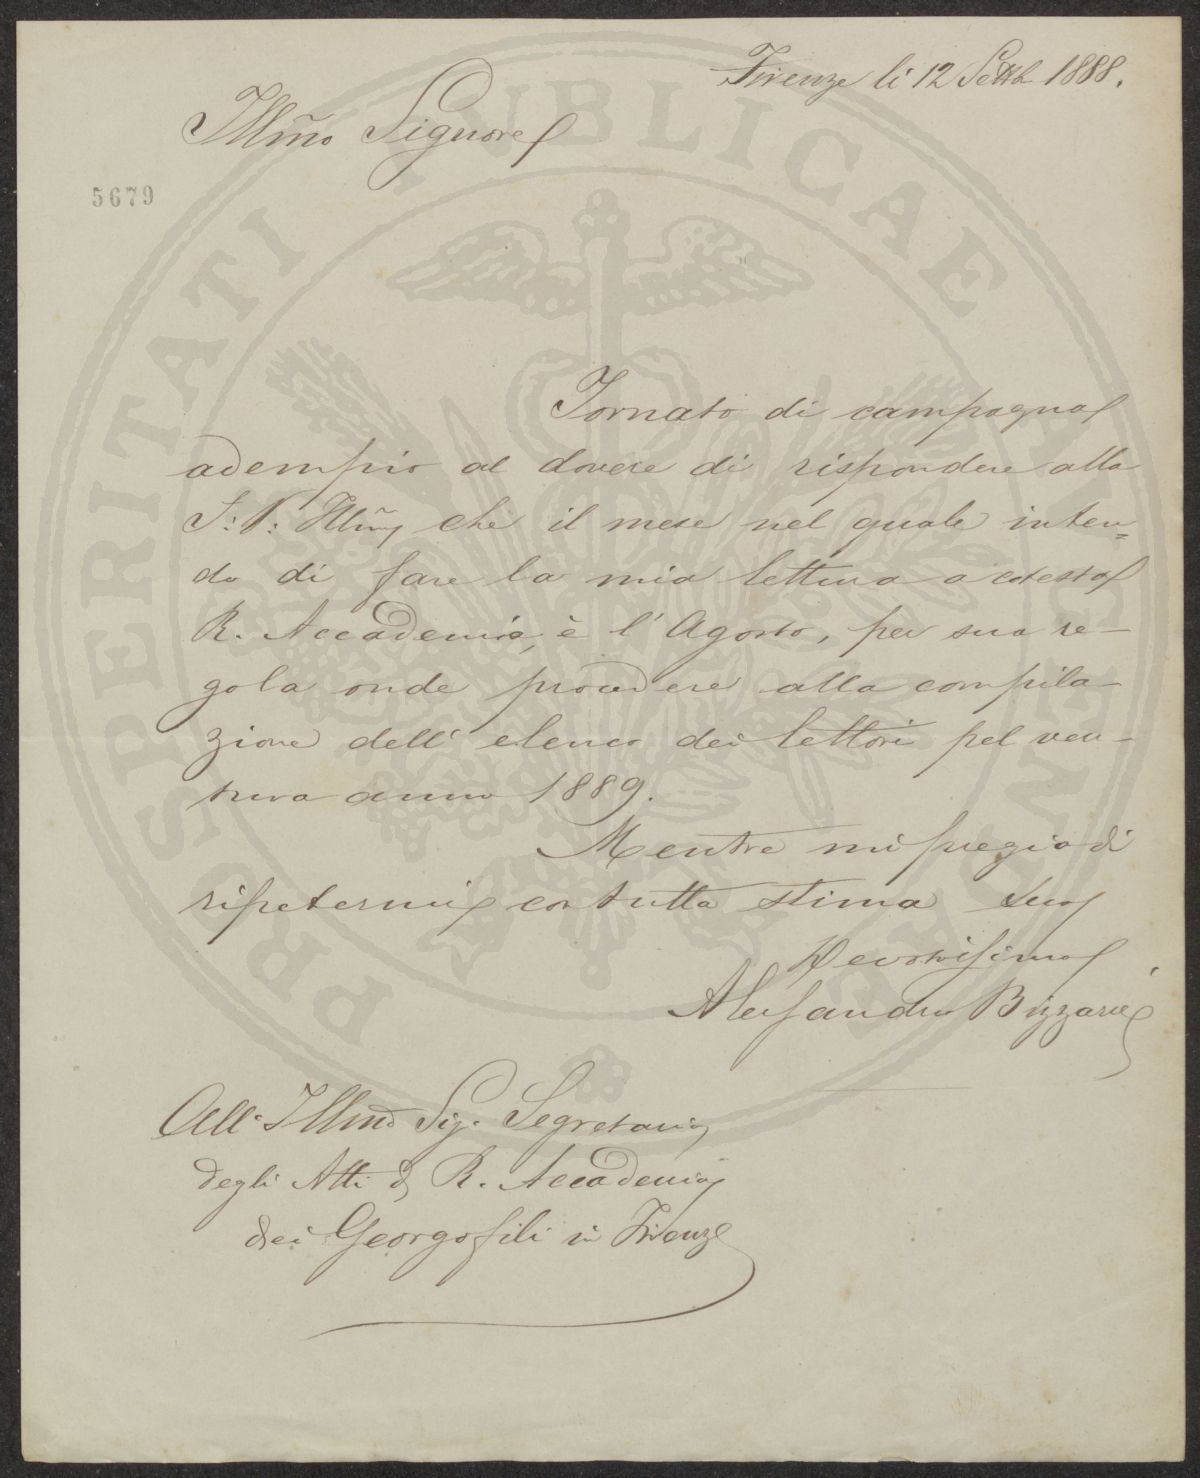 Firenze li 12 Settb 1888.
Illmo Signore
5679
Tornato di campagna
adempio al dovere di rispondere alla
S: V: Illma che il mese nel quale inten=
do di fare la mia lettura a cotesta
R. Accademia, è l'Agosto, per sua re-
gola onde procedere alla compila-
zione dell'elenco dei lettori pel ven-
turo anno 1889.
Mentre mi pregio di
ripetermi con tutta stima Suo
Devotissimo
Alessandro Bizzarri
All. Illmo Sig. Segretario
degli Atti d R. Accademia
dei Georgofili in Firenze
PROSPERITATI PUBLICAE AUGENDAE